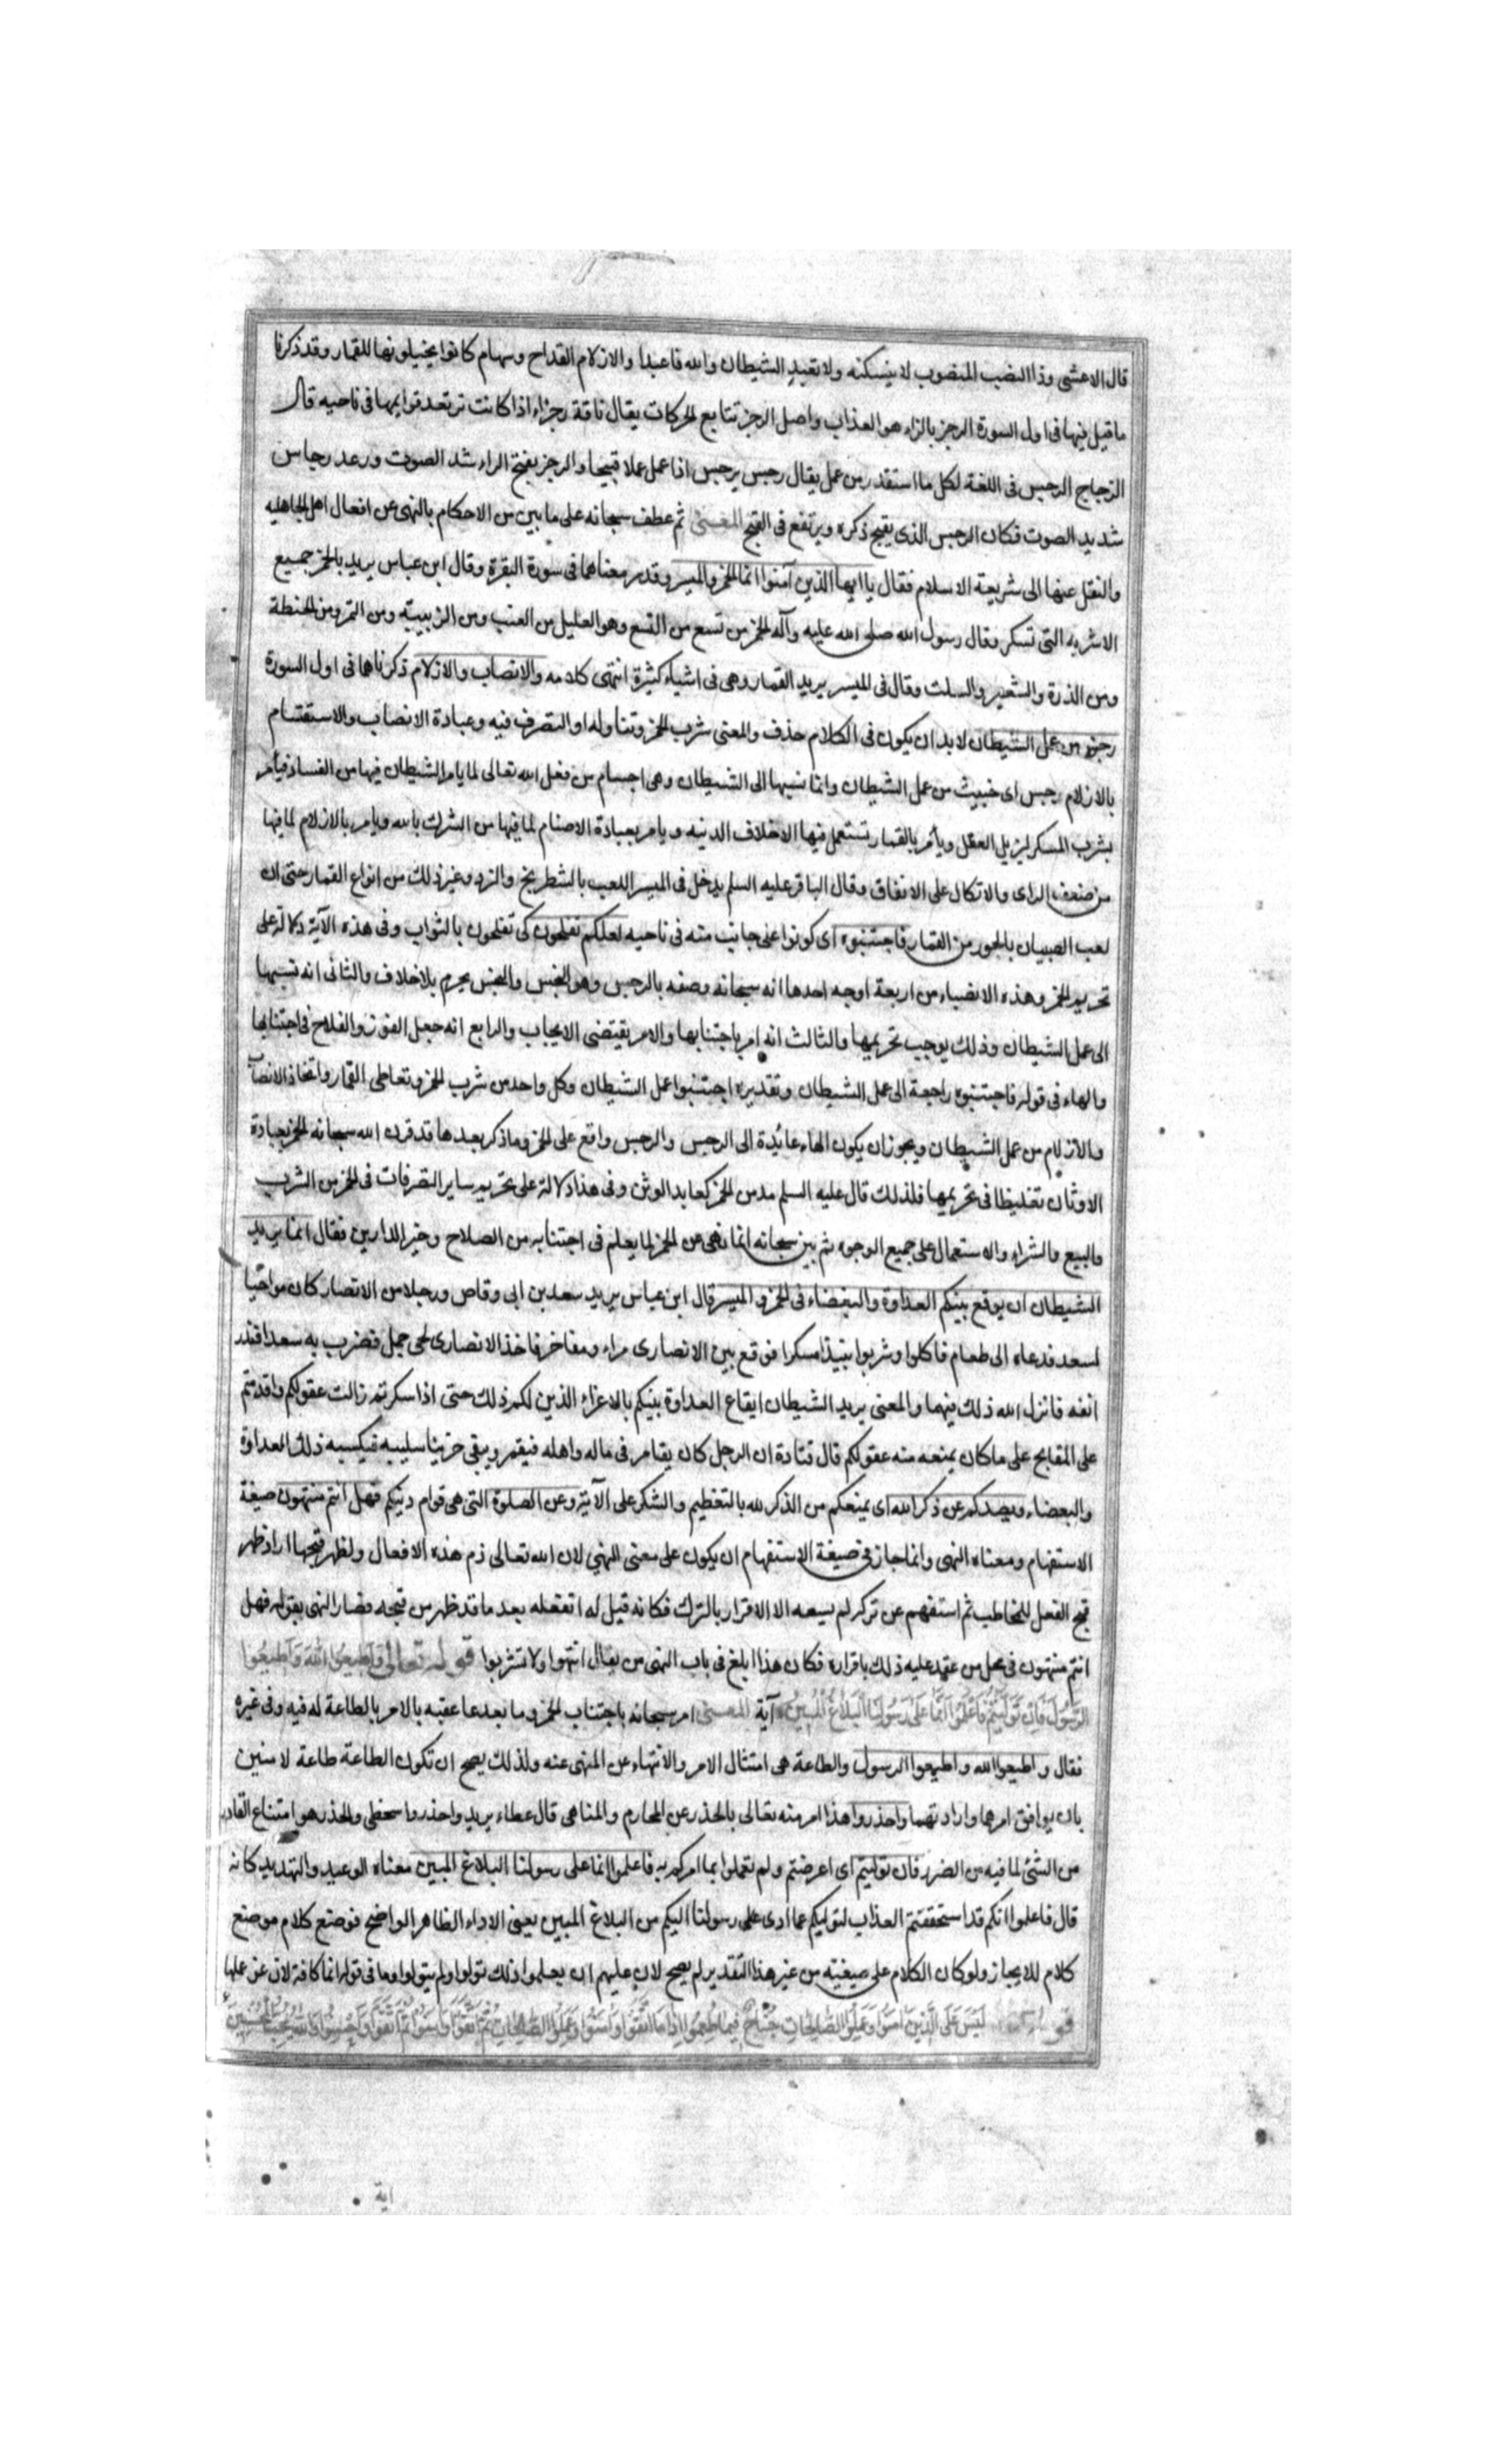 قال الاعشى وذا النصب المنصوب لا ينسكنه ولا تعبد الشيطان والله فاعبدا والازلام القداح وسهام كانوا يجيلونها للقمار وقد ذكرنا
ما قيل فيها فى اول السورة الرجز بالزاء هو العذاب واصل الرجز تتابع الحركات يقال ناقة رجزاء اذا كانت ترتعد قوايمها فى ناحيه قال
الزجاج الرجس فى اللغة لكل ما استقذر من عمل يقال رجس يرجس اذا عمل عملا قبيحا والرجز بفتح الراء شد الصوت ورعد رجاس
شديد الصوت فكان الرجس الذى يقبح ذكره ويرتفع فى القبح المعنى ثم عطف سبحانه على ما بين من الاحكام بالنهى عن افعال اهل الجاهليه
والنقل عنها الى شريعة الاسلام فقال يا ايها الذين آمنوا انما الخمر والميسر وقد مر معناهما فى سورة البقرة وقال ابن عباس يريد بالخمر جميع
الاشربه التى تسكر وقال رسول الله صلى الله عليه وآله الخمر من تسع من التبع وهو العسل من العنب ومن الزبيب ومن التمر ومن الحنطة
ومن الذرة والشعير والسلت وقال فى الميسر يريد القمار وهى فى اشياء كثيرة انتهى كلامه والانصاب والازلام ذكرناها فى اول السورة
رجز من عمل الشيطان لا بد ان يكون فى الكلام حذف والمعنى شرب الخمر وتناوله او التصرف فيه وعبادة الانصاب والاستقسام
بالازلام رجس اى خبيث من عمل الشيطان وانما نسبها الى الشيطان وهى اجسام من فعل الله تعالى لما يامر الشيطان فيها من الفساد فيأمر
بشرب المسكر ليزيل العقل ويأمر بالقمار تستعمل فيها الاخلاق الدنيه ويامر بعبادة الاصنام لما فيها من الشرك بالله ويامر بالازلام لما فيها
من ضعف الراى والاتكال على الاتفاق وقال الباقر عليه السلم يدخل فى الميسر اللعب بالشطرنج والنرد وغير ذلك من انواع القمار حتى ان
لعب الصبيان بالجوز من القمار فاجتنبوه اى كونوا على جانب منه فى ناحيه لعلكم تفلحون كى تفلحون بالثواب وفى هذه الآية دلالة على
تحريم الخمر وهذه الاشياء من اربعة اوجه احدها انه سبحانه وصفه بالرجس وهو النجس والنجس يحرم بلا خلاف والثانى انه نسبها
الى عمل الشيطان وذلك يوجب تحريمها والثالث انه امر باجتنابها والامر يقتضى الايجاب والرابع انه جعل الفوز والفلاح فى اجتنابها
والهاء فى قوله فاجتنبوه راجعة الى عمل الشيطان وتقديره اجتنبوا عمل الشيطان وكل واحد من شرب الخمر وتعاطى القمار واتخاذ الانصاب
والازلام من عمل الشيطان ويجوز ان يكون الهاء عائدة الى الرجس والرجس واقع على الخمر وما ذكر بعدها قد قرن الله سبحانه الخمر بعبادة
الاوثان تغليظا فى تحريمها فلذلك قال عليه السلم مدمن الخمر كعابد الوثن وفى هذا دلالة على تحريم ساير التصرفات فى الخمر من الشرب
والبيع والشراء والاستعمال على جميع الوجوه ثم بين سبحانه انما نهى عن الخمر لما يعلم فى اجتنابه من الصلاح وخير الدارين فقال انما يريد
الشيطان ان يوقع بينكم العداوة والبغضاء فى الخمر والميسر قال ابن عباس يريد سعد بن ابى وقاص ورجلا من الانصار كان مواخيا
لسعد فدعاه الى طعام فاكلوا وشربوا نبيذا مسكرا فوقع بين الانصارى مراء ومفاخر فاخذ الانصارى لحى جمل فضرب به سعدا ففزر
انفه فانزل الله ذلك فيهما والمعنى يريد الشيطان ايقاع العداوة بينكم بالاغراء الذين لكم ذلك حتى اذا سكرتم زالت عقولكم واقدمتم
على المقابح على ما كان يمنعه منه عقولكم قال قتادة ان الرجل كان يقامر فى ماله واهله فيقمر ويبقى حزينا سليبه فيكسبه ذلك العداوة
والبعضاء ويصدكم عن ذكر الله اى يمنعكم من الذكر لله بالتعظيم والشكر على الآية وعن الصلوة التى هى قوام دينكم فهل انتم منتهون صيغة
الاستفهام ومعناه النهى وانما جاز فى صيغة الاستفهام ان يكون على معنى النهي لان الله تعالى ذم هذه الافعال ولظهر قبحها اراذ ظهر
قبح الفعل للمخاطب ثم استفهم عن تركه لم يسعه الا الاقرار بالترك فكانه قيل له اتفعله بعد ما قد ظهر من قبحه فصار النهى بقوله فهل
انتم منتهون فى محل من عقد عليه ذلك باقراره فكان هذا ابلغ فى باب النهى من يقال انتهوا ولا تشربوا قوله تعالى واطيعوا الله وَاطيعُوا
الرَّسُول فَاِن تَوَلَّيتُم فَاعْلَموا اَنَّما عَلى رَسُولِنَا البَلاغُ المُبينُ آية المعنى امر سبحانه باجتناب الخمر وما بعدها عقبه بالامر بالطاعة له فيه وفى غيره
فقال واطيعوا الله واطيعوا الرسول والطاعة هى امتثال الامر والانتهاء عن المنهى عنه ولذلك يصح ان تكون الطاعة طاعة لاثنين
بان يوافق امرهما وارادتهما واحذروا هذا امر منه تعالى بالحذر عن المحارم والمناهى قال عطاء يريد واحذروا سخطى والحذر هو امتناع القادر
من الشئ لما فيه من الضرر فان توليتم اى اعرضتم ولم تعملوا بما امركم به فاعلموا انما على رسولنا البلاغ المبين معناه الوعيد والتهديد كانه
قال فاعلموا انكم قد استحققتم العذاب لتوليكم عما ادى على رسولنا اليكم من البلاغ المبين يعنى الاداء الظاهر الواضح فوضع كلام موضع
كلام للايجاز ولو كان الكلام على صيغته من غير هذا التقدير لم يصح لان عليهم ان يعلموا ذلك تولوا ولم يتولوا وما فى قوله انما كافة لان عن عملها
قوله لَيسَ عَلَى الَّذينَ آمَنوا وَعَمِلُوا الصَّالِحاتِ جُناحٌ فيما طَعِمُوا اِذا مَا اتَّقَوا وَآمَنُوا وَعَمِلُوا الصّالِحاتِ ثُمَّ اتَّقَوا وَآمَنُوا ثُمَّ اتَّقَوا وَاَحْسَنُوا وَاللهُ يُحِبُّ المُحْسِنينَ
اية